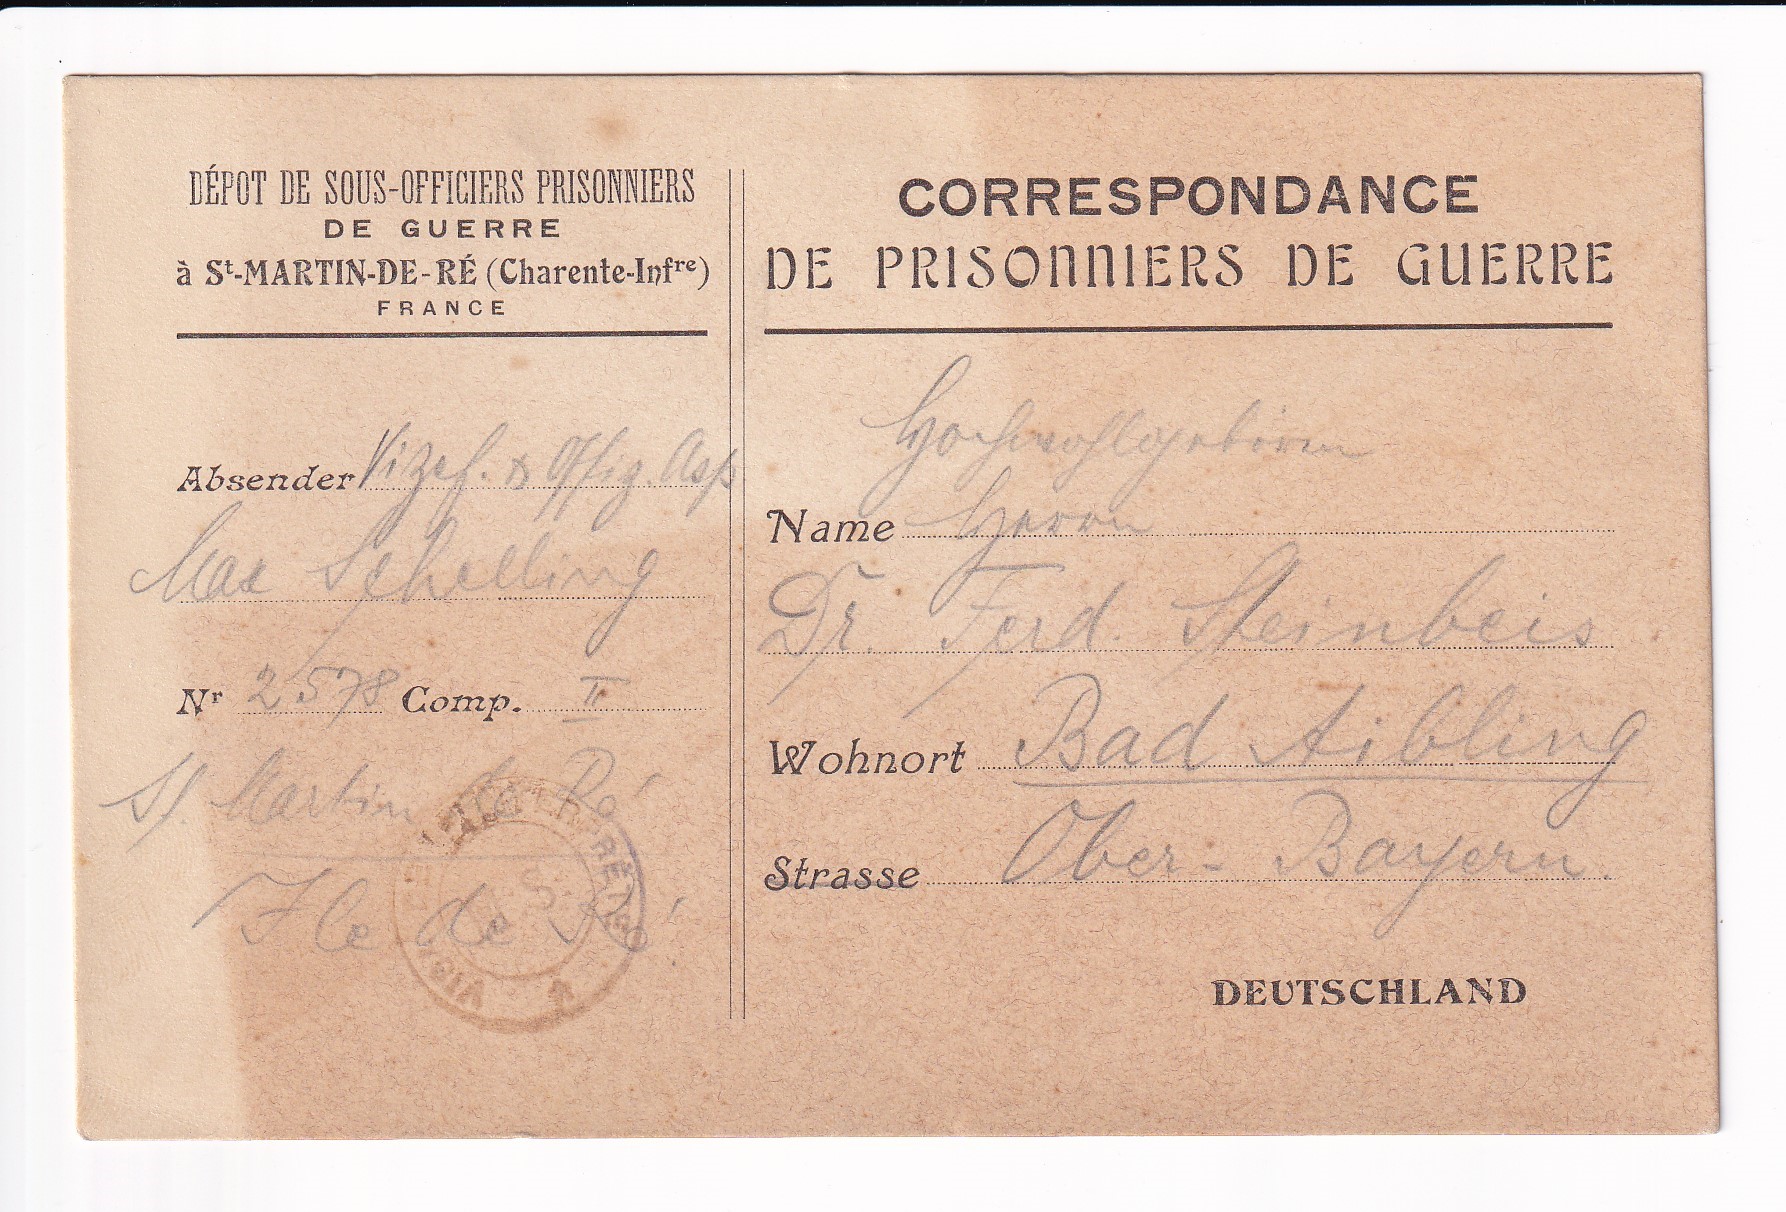 DÉPOT DE SOUS-OFFICIERS PRISONNIERS
DE GUERRE
à St-MARTIN-DE-RÉ (Charente-Infre)
FRANCE
Absender Vizef. & Offiz. Asp
Max Schelling
Nr 2578 Comp. II
St. Martin de Ré
Ile de Ré
CORRESPONDANCE
DE PRISONNIERS DE GUERRE
Hochwohlgeboren
Name Herrn
Dr. Ferd. Steinbeis
Wohnort Bad Aibling
Strasse Ober-Bayern.
DEUTSCHLAND